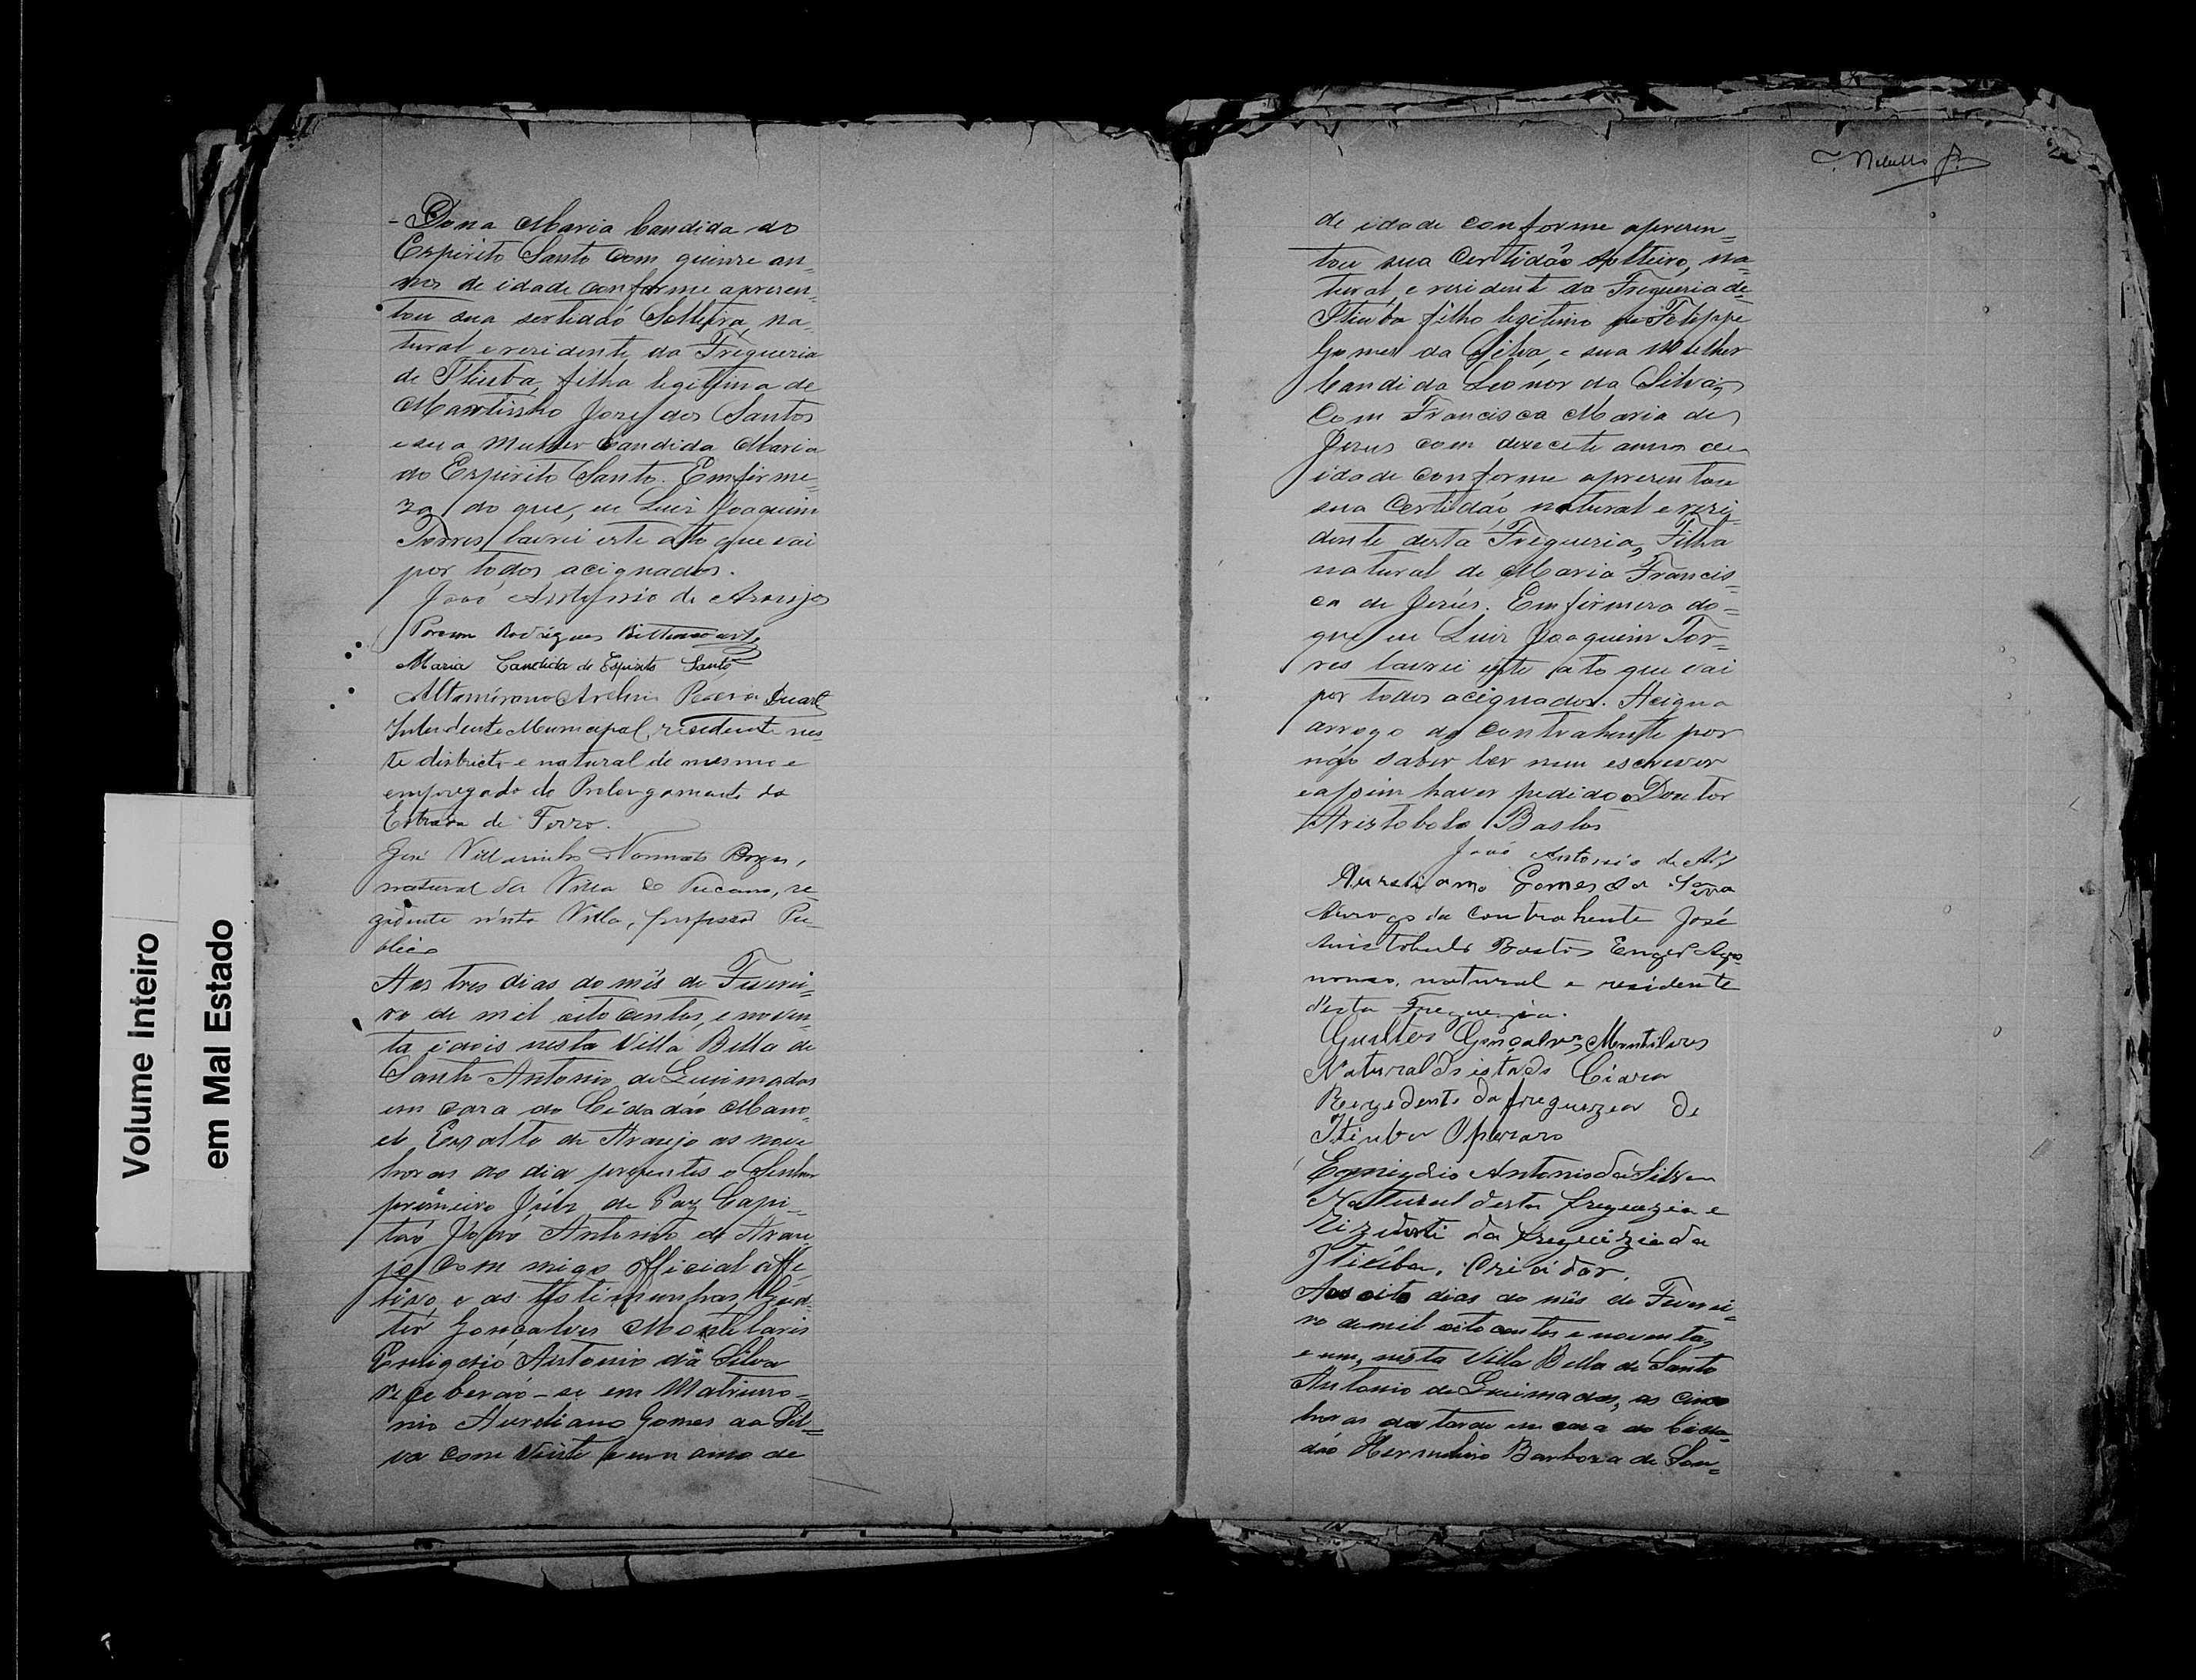 - Dona Maria Candida do
Espirito Santo com quinze an=
nos de idade conforme apresen=
tou sua sertidaó Solteira, na=
tural e residente da Freguezia
de Itiuba, filha legitima de
Martinho Jozé dos Santos
e sua Mulher Candida Maria
do Espirito Santo. Em firme=
za do que, eu Luiz Joaquim
Torres lavrei este ato que vai
por todos acignados.
Joaó Antonio de Araujo
Rodrigues Bittencourt
Maria Candida do Espirito Santo
Pereira Duarte
Intendente Municipal, residente nes
te districto e natural do mesmo e
empregado do Prolongamento da
Estrada de Ferro.
José Nonnato Borges,
natural da Villa do Tucano, re
zidente n'esta Villa, professor Pu=
blico
Aos tres dias do mês de Feverei=
ro de mil oito centos, e noven=
ta e dois nesta Villa Bella de
Santo Antonio de Queimadas
em caza do Cidadaó Mano=
el de Araujo as nove
horas do dia prezentes o Senhor
primeiro Juiz de Paz Capi=
taó Joaó Antonio de Arau=
jo com migo official effe=
tivo, e as testimunhas Gual=
ter Gonçalves Montelares
Emigdio Antonio da Silva
receberaó-se em Matrimo=
nio Aureliano Gomes da Sil=
va com Vinte e um anno de
de idade conforme apresen=
tou sua Certidaõ Solteiro, na=
tural e residente da Freguezia de
Itiuba filho legitimo de Felippe
Gomes da Silva, e sua Mulher
Candida Leonor da Silva,
Com Francisca Maria de
Jezus com dezecete annos de
idade conforme apresentou
sua Certidaó natural e rezi=
dente desta Freguezia, Filha
natural de Maria Francis=
ca de Jezús. Em firmeza do=
que eu Luiz Joaquim Tor=
res lavrei este ato que vai
por todos acignados. Acigna
arrogo da contrahente por
não saber ler nem escrever
e assim haver pedido o Doutor
Aristobolo Bastos
Joaó Antonio de
Aureliano Gomes da
Arrogo da Contrahente José
Aristobulo Bastos Engeº Agro=
nomo, natural e residente
d'esta Freguezia.
Gualter Gonçalves Montilares
Natural do istado Ciara
Rezedente da freguezea de
Itiuba Operaro
Emigdio Antonio da Silva
Natural desta freguezia e
Rizidenti da freguezia da
Itiúba, Criador.
Aos oito dias do mês de Feverei=
ro de mil oito centos e noventa,
e um, nesta Villa Bella de Santo
Antonio de Queimadas, as cinco
horas da tarde em caza do Cida=
daó Hermelino Barboza de Sou=
Volume Inteiro
em Mal Estado